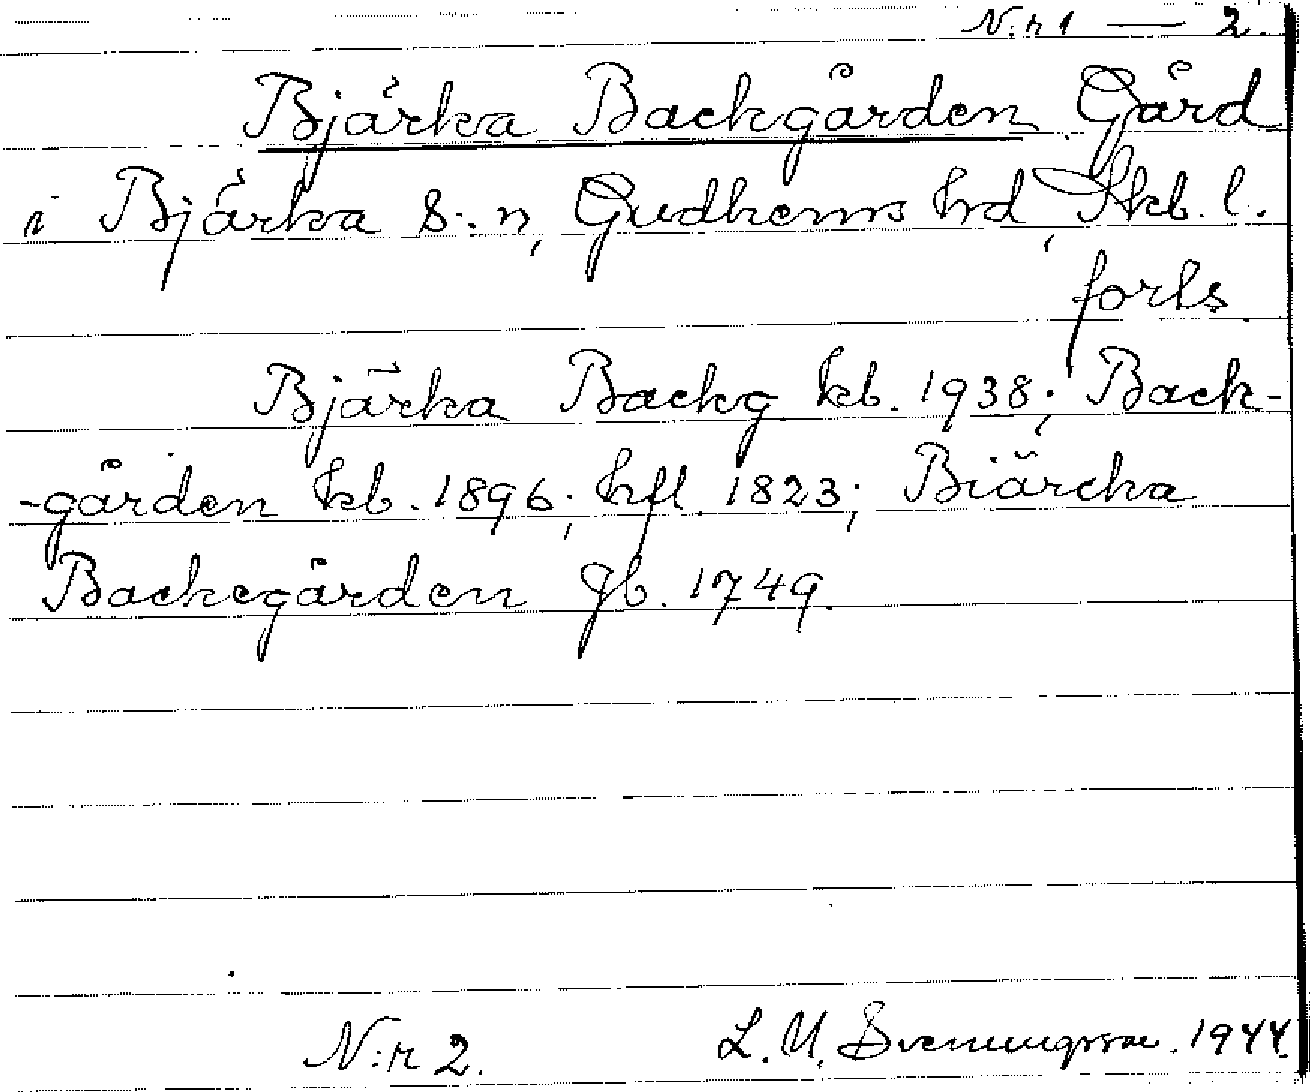 N:r 1 — 2.
Bjärka Backgården. Gård
i Bjärka s:n, Gudhems hd, Skb. l.
forts.
Bjärka Backg kb. 1938; Back-
-gården kb. 1896; hfl. 1823; Biärcka
Backegården Jb. 1749.
N:r 2. L. M. Svenungsson. 1944.